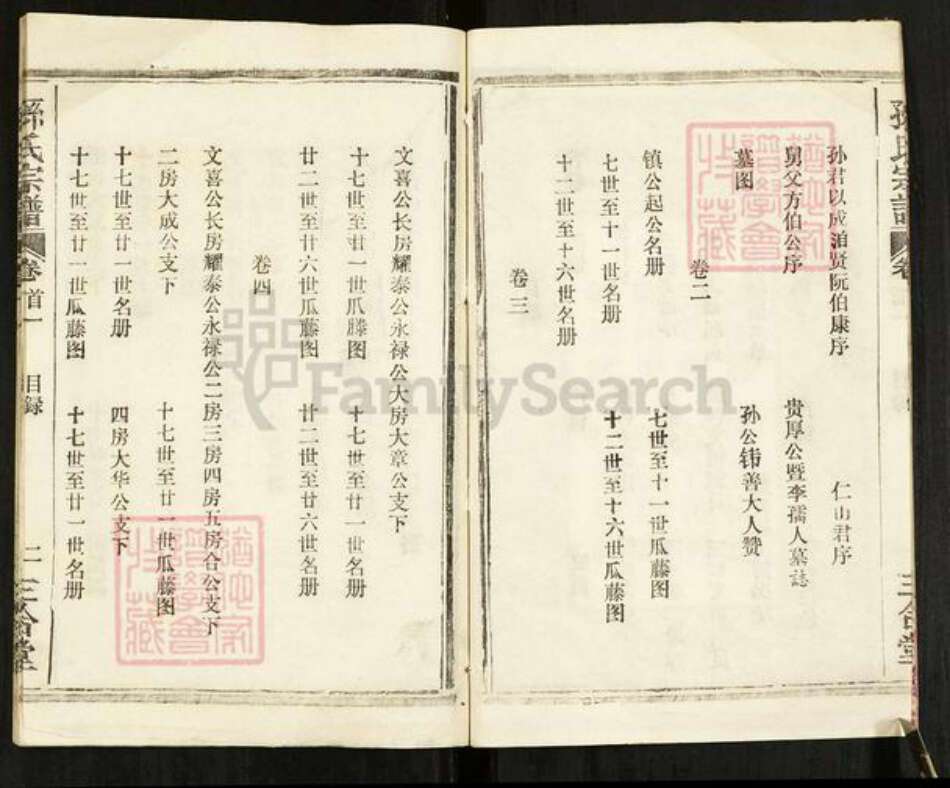 孙君以成洎贤阮伯康序
仁山君序
舅父方伯公序
贵厚公暨李孺人墓誌
墓图
孙公铈善大人赞
卷二
镇公起公名册
七世至十一世瓜藤图
七世至十一世名册
十二世至十六世瓜藤图
十二世至十六世名册
卷三
文喜公长房耀泰公永禄公大房大章公支下
十七世至廿一世瓜藤图
十七世至廿一世名册
廿二世至廿六世瓜藤图
廿二世至廿六世名册
卷四
文喜公长房耀泰公永禄公二房三房四房五房合公支下
二房大成公支下
十七世至廿一世瓜藤图
十七世至廿一世名册
四房大华公支下
十七世至廿一世瓜藤图
十七世至廿一世名册
孫氏宗譜
卷首一
目録
二
三合堂
孫氏宗譜
卷
三合堂
FamilySearch